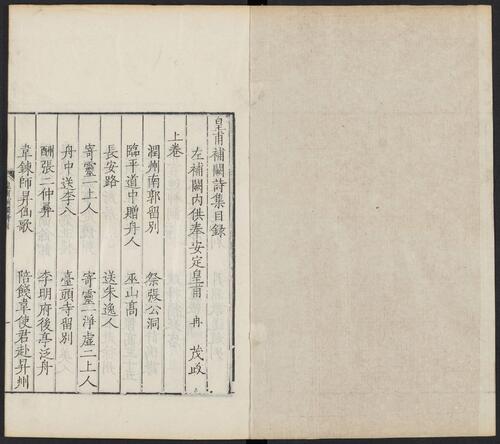 皇甫補闕詩集目録
左補闕内供奉安定皇甫 冉 茂政
上卷
潤州南郭留別 祭張公洞
臨平道中贈舟人 巫山髙
長安路 送朱逸人
寄靈一上人 寄靈一淨虛二上人
舟中送李八 臺頭寺留別
酬張二仲彝 李明府後亭泛舟
韋錬師昇仙歌 陪餞韋使君赴昇州